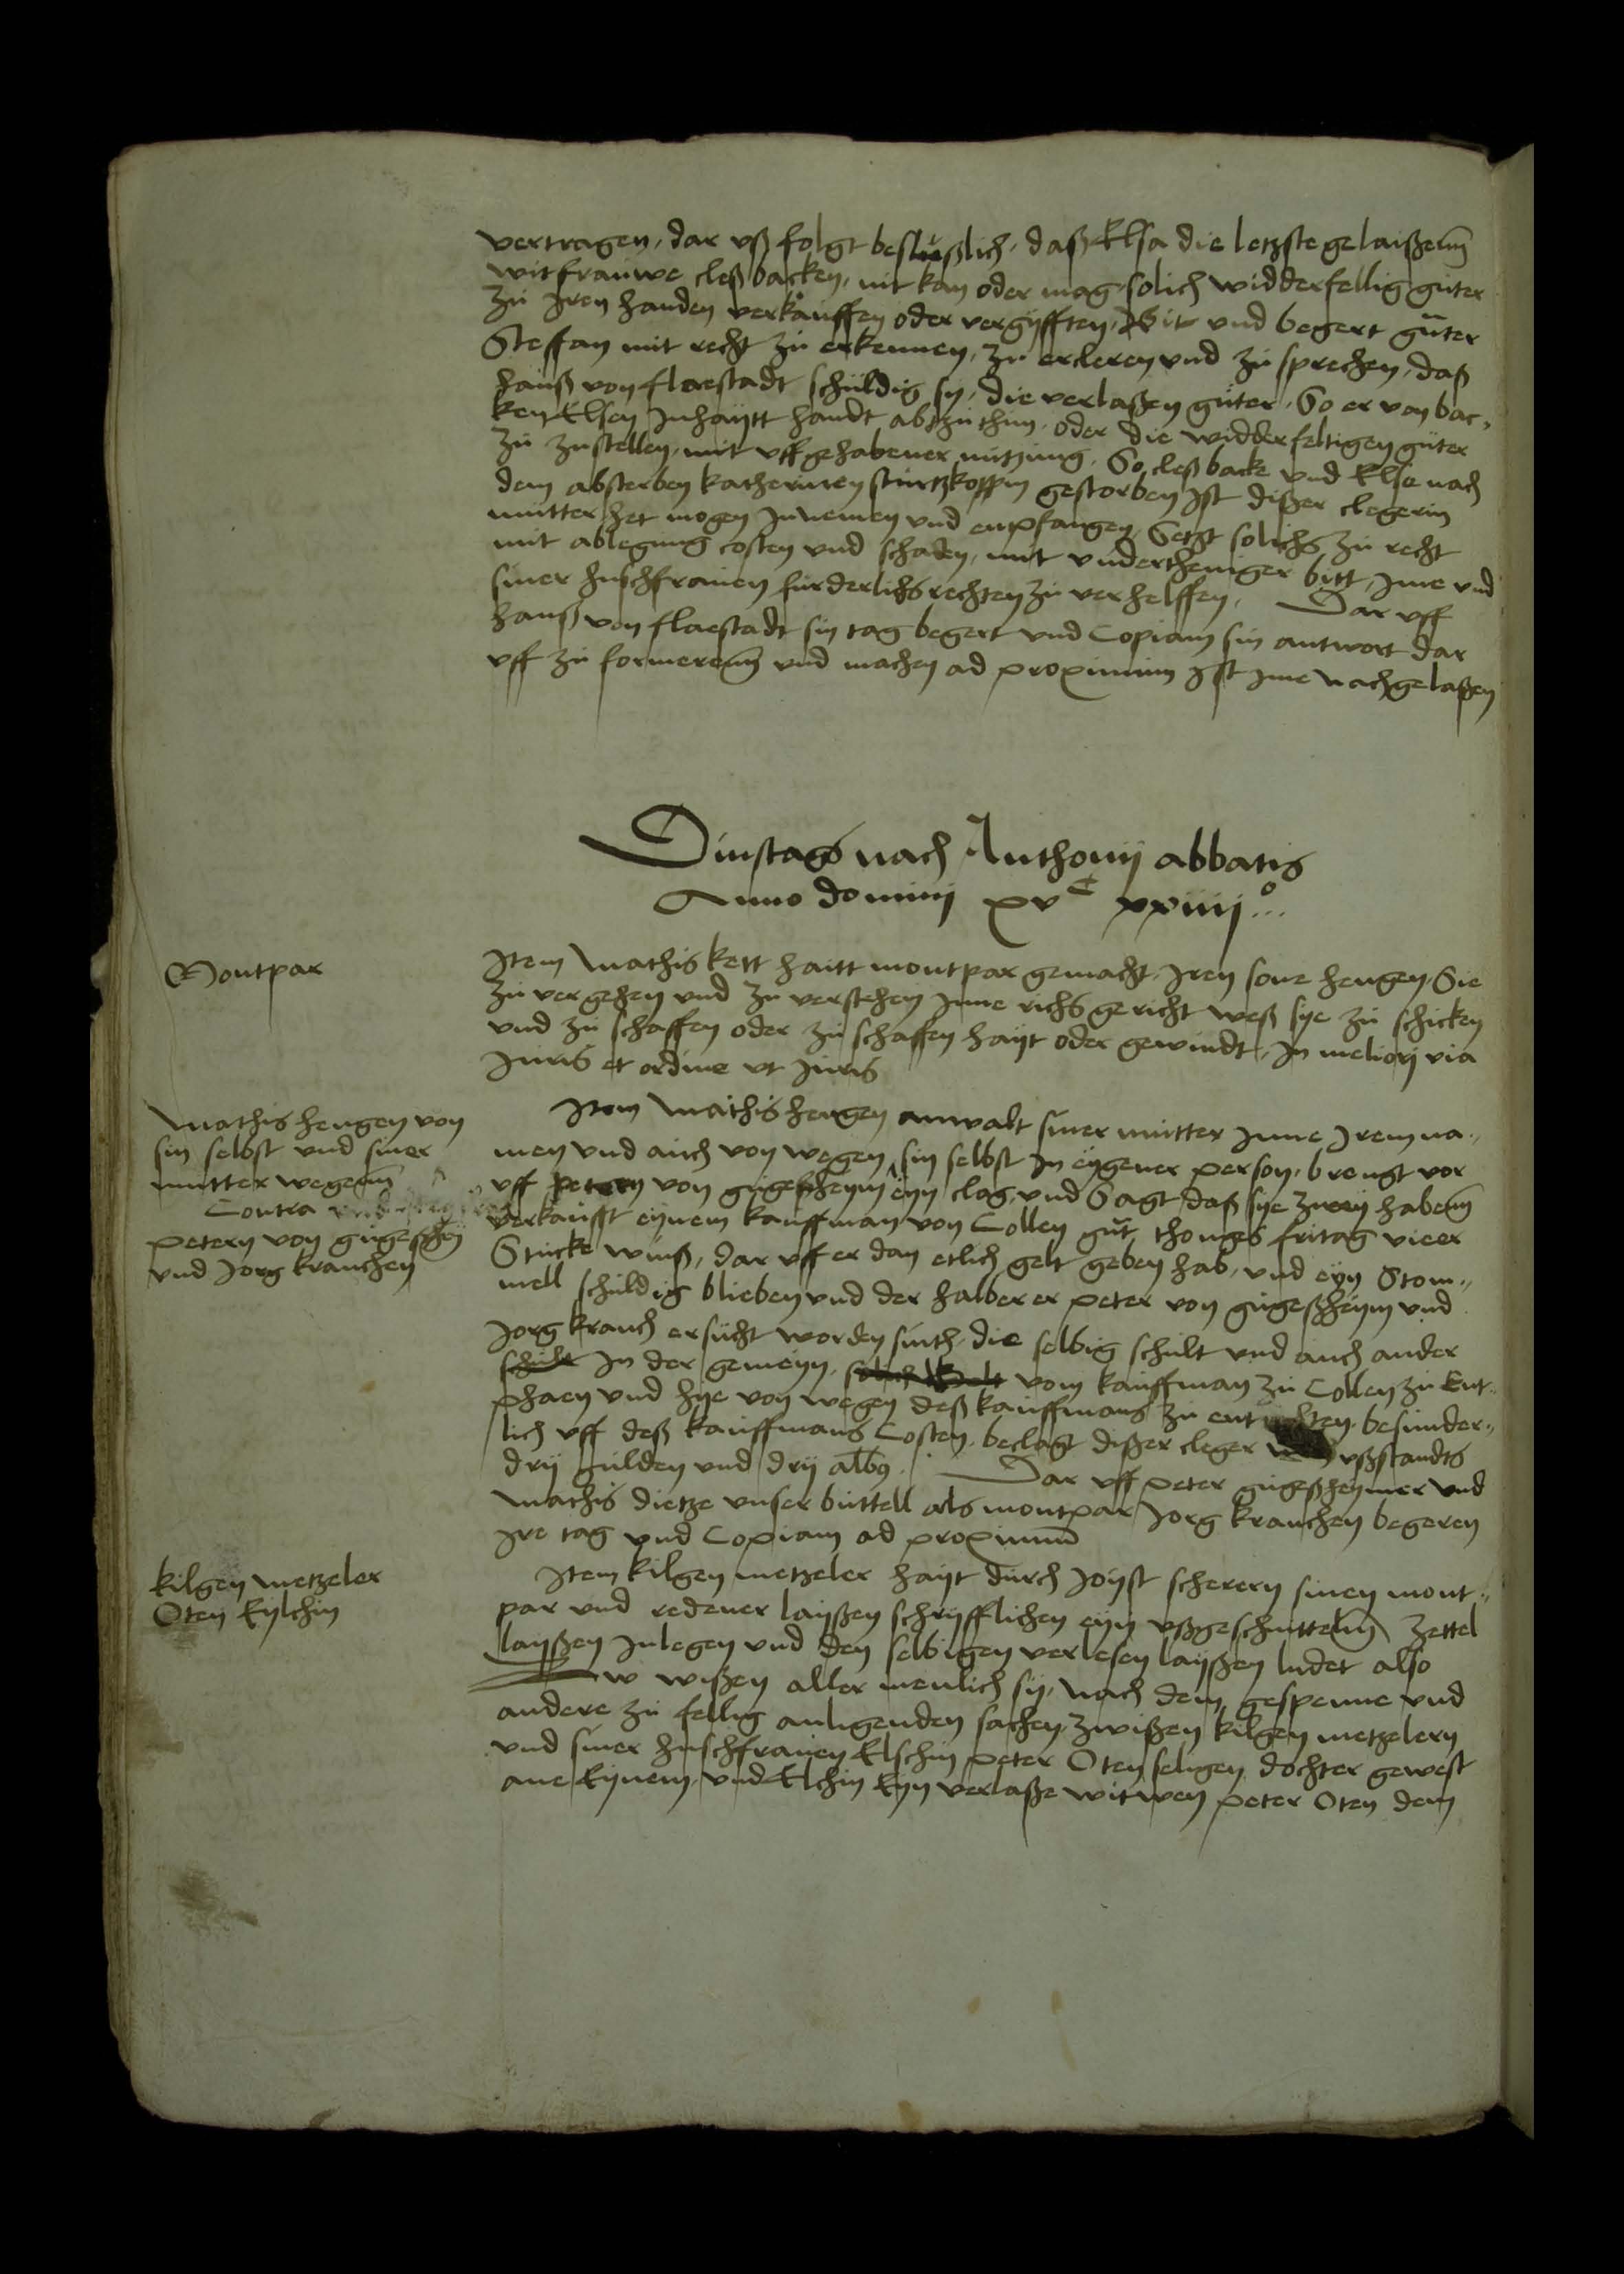 vertragen, dar uß folgt beslußlich, daß Elsa die letzste gelaißenn
witfrauwe cleß backen, nit kan oder mag solich widderfellig guter
zu Iren handen verkauffen oder vergyfften, Bit und begert guter
Steffan mit recht zu erkennen, zu ercleren und zu sprechen, daß
hanß von flaestadt schuldig sy, die verlaßen guter, So er von bac,
ken Elsen Inhaytt handt abzuthun, oder die widderfeltigen guter
zu zustellen, mit uffgehabener nutzung, So cleß backe und Else nach
dem absterben katherinen sturtzkopffin gestorben Ist dißer clegerin
mutter het mogen Innemen und entpfangen, Setzt solichs zu recht
mit ablegung costen und schaden, mit undertheniger bitt, Ime und
siner huschfrauen furderlichs rechten zu verhelffen, Dar uff
hanß von flaestadt sin tag begert und Copiam sin antwort dar
uff zu formerenn und machen ad proximum Ist Ime nachgelaßen
Dinstags nach Anthonij abbatis
Anno domini xvᶜ xxiiijᵒ
Montpar
Item Mathis kett haitt montpar gemacht, Iren sone hengen Sie
zu vergehen und zu verstehen Inne richs gericht weß sye zu schicken
und zu schaffen oder zu schaffen hayt oder gewindt, In meliori via
Juris et ordine ut Juris
Mathis hengen von
sin selbst und siner
mutter wegenn
Contra
petern von gugeßheym
und Jorg kranchen
Item Mathis hengen anwalt siner mutter Inne Irem na,,
men und auch von wegen sin selbst In eygener person, brengt vor
uff petern von gugeßheym eyn clag, und Sagt daß sye zweij habenn
verkaufft eynem kauffman von Collen gut thonges fritag vieer
Stucke winß, dar uff er dan etlich gelt geben hab, und eyn Stom,,
mell schuldig blieben und der halber er peter von gugeßheym und
Jorg kranch ersucht worden sinth, die selbig schult und auch ander
schult In der gemeyn, solich vom kauffman zu Collen zu Ent,,
phaen und hye von wegen deß kauffmans zu entrichten, besunder,,
lich uff deß kauffmans Costen, beclagt dißer cleger ußstandts
drij gulden und drij albus, Dar uff peter gugeßheymer und
Mathis dietze unser buttell als montpar Jorg kranchen begeren
Ire tag und Copiam ad proximum
kilgen metzeler
Oten Eylchin
Item kilgen metzeler hayt durch Joyst scherern sinen mont,,
par und redener layßen schryfftlichen eyn ußgeschnittelnn zettel
layßen Inlegen und den selbigen verlesen layßen ludet also
Zw wißen aller menlich sy, nach dem gespenne und
andere zu fellig anligenden sachen, zwißen kilgen metzelern
und siner huschfrauen Elschin peter Oten seligen dochter gewest
ane Eynem, und Elchin Eyn verlaße witwen peter Oten dem